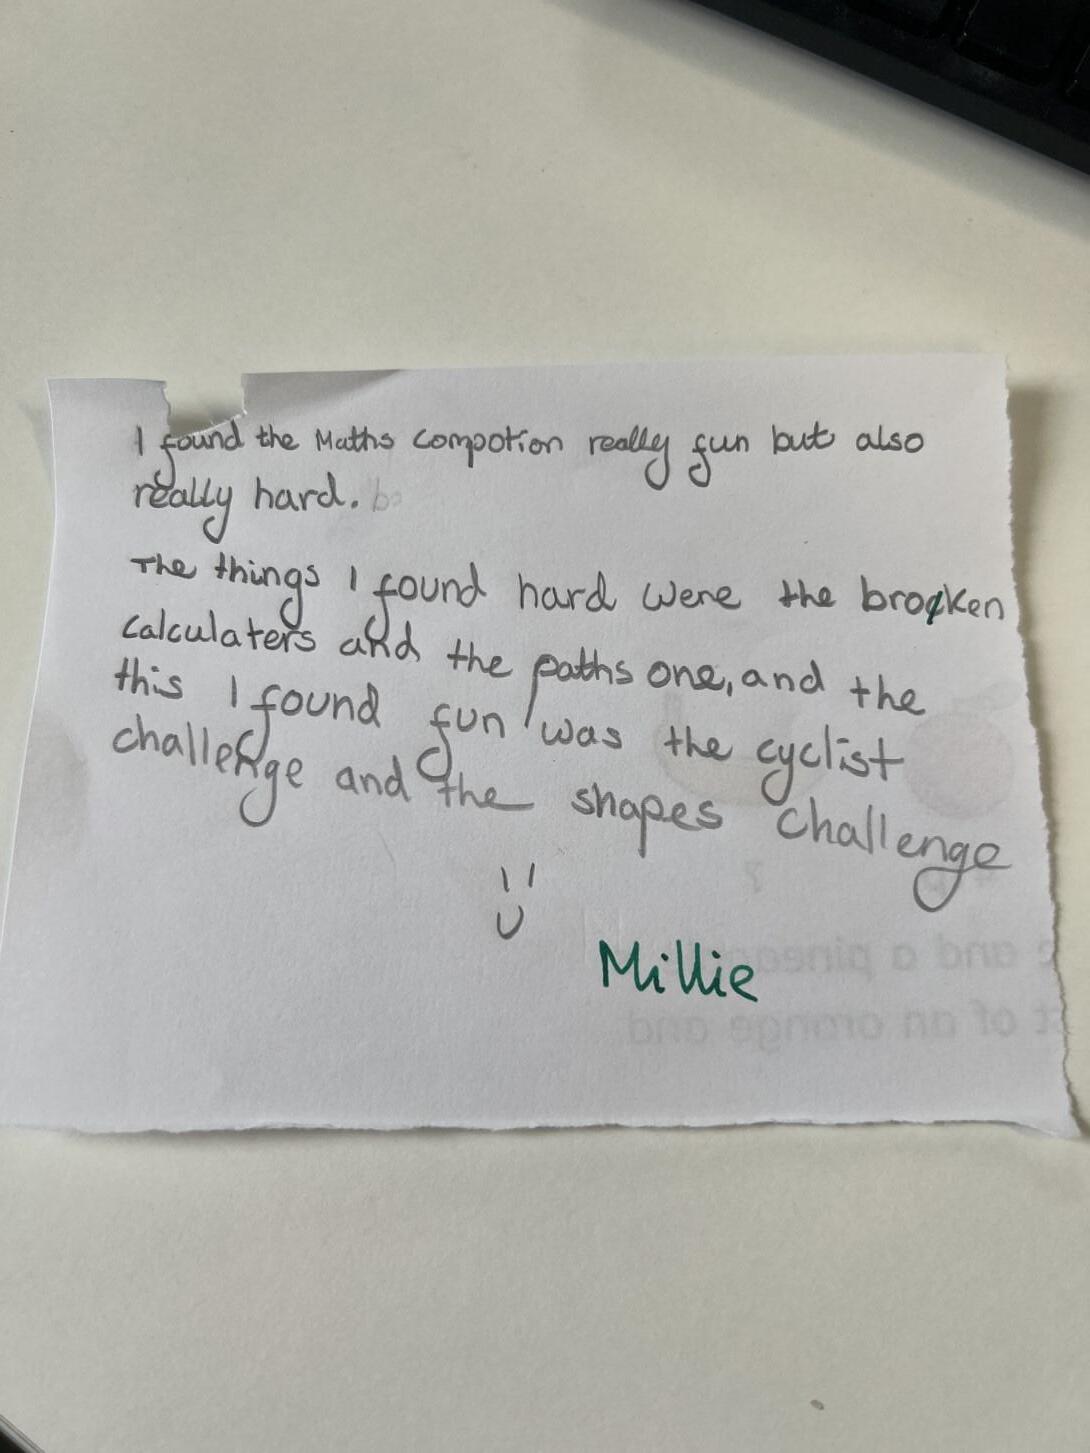 I found the Maths compotion really fun but also
really hard.
The things I found hard were the broken
calculaters and the paths one, and the
this I found fun was the cyclist
challenge and the shapes challenge
Millie
and a pineap
of an orange and